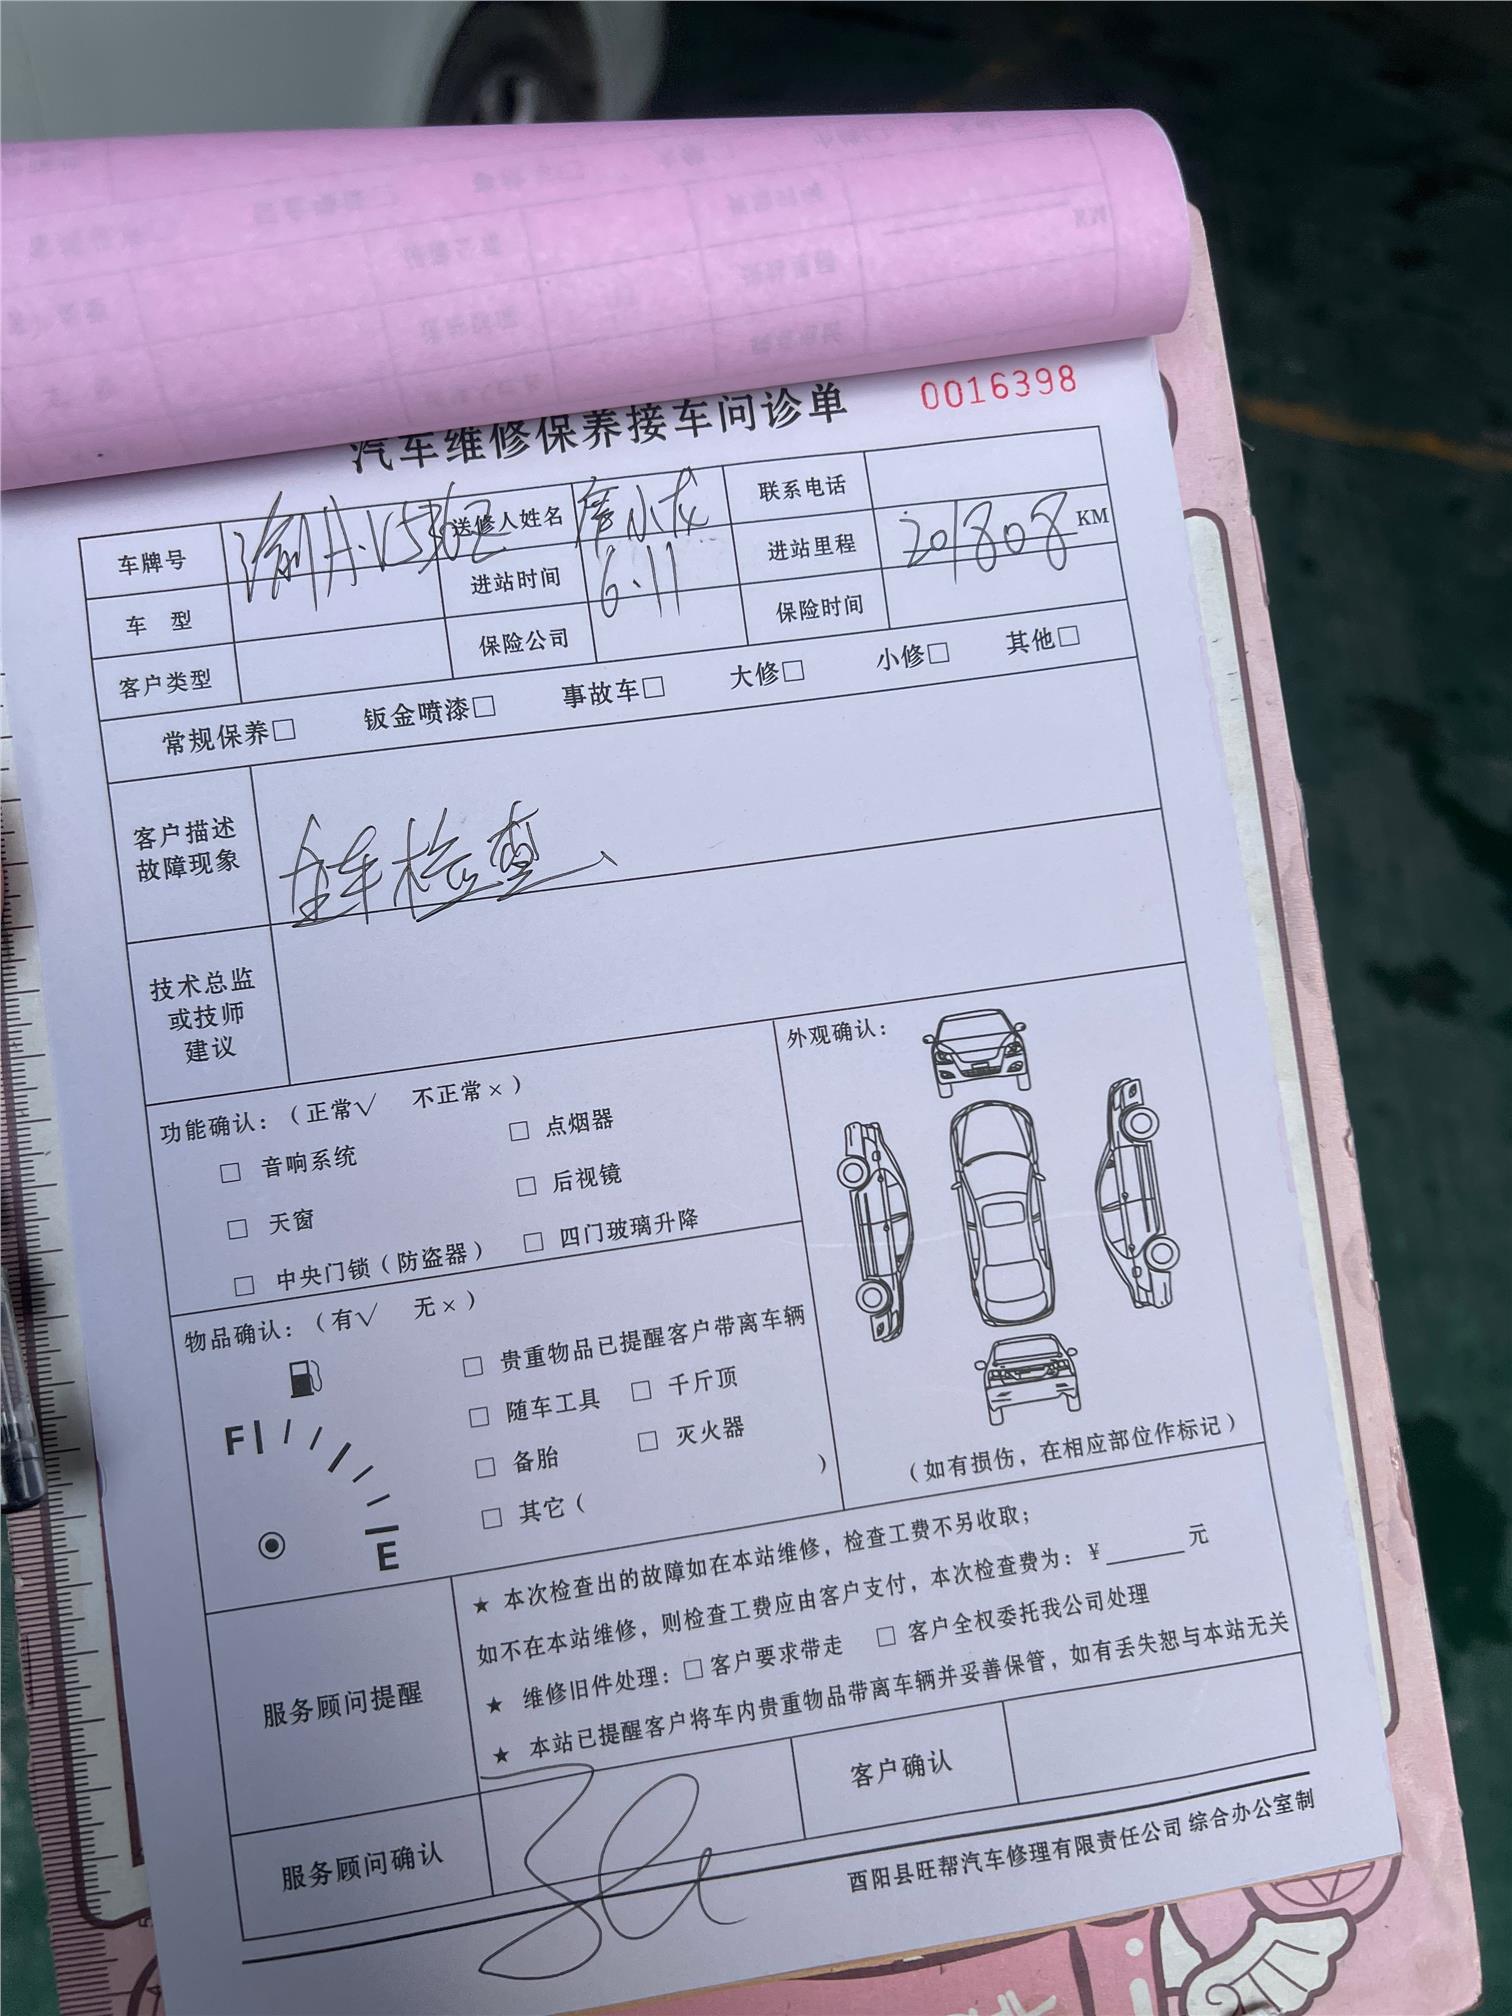 0016398
汽车维修保养接车问诊单
车牌号 送修人姓名 联系电话
车 型 进站时间 6.11 进站里程 201808 KM
客户类型 保险公司 保险时间
常规保养□ 钣金喷漆□ 事故车□ 大修□ 小修□ 其他□
客户描述
故障现象
全车检查
技术总监
或技师
建议
功能确认：（正常√ 不正常×）
□ 音响系统 □ 点烟器
□ 天窗 □ 后视镜
□ 中央门锁（防盗器） □ 四门玻璃升降
外观确认：
（如有损伤，在相应部位作标记）
物品确认：（有√ 无×）
F
E
□ 贵重物品已提醒客户带离车辆
□ 随车工具 □ 千斤顶
□ 备胎 □ 灭火器
□ 其它（ ）
服务顾问提醒
★ 本次检查出的故障如在本站维修，检查工费不另收取；
如不在本站维修，则检查工费应由客户支付，本次检查费为：¥______元
★ 维修旧件处理：□客户要求带走 □ 客户全权委托我公司处理
★ 本站已提醒客户将车内贵重物品带离车辆并妥善保管，如有丢失恕与本站无关
服务顾问确认 客户确认
酉阳县旺帮汽车修理有限责任公司 综合办公室制